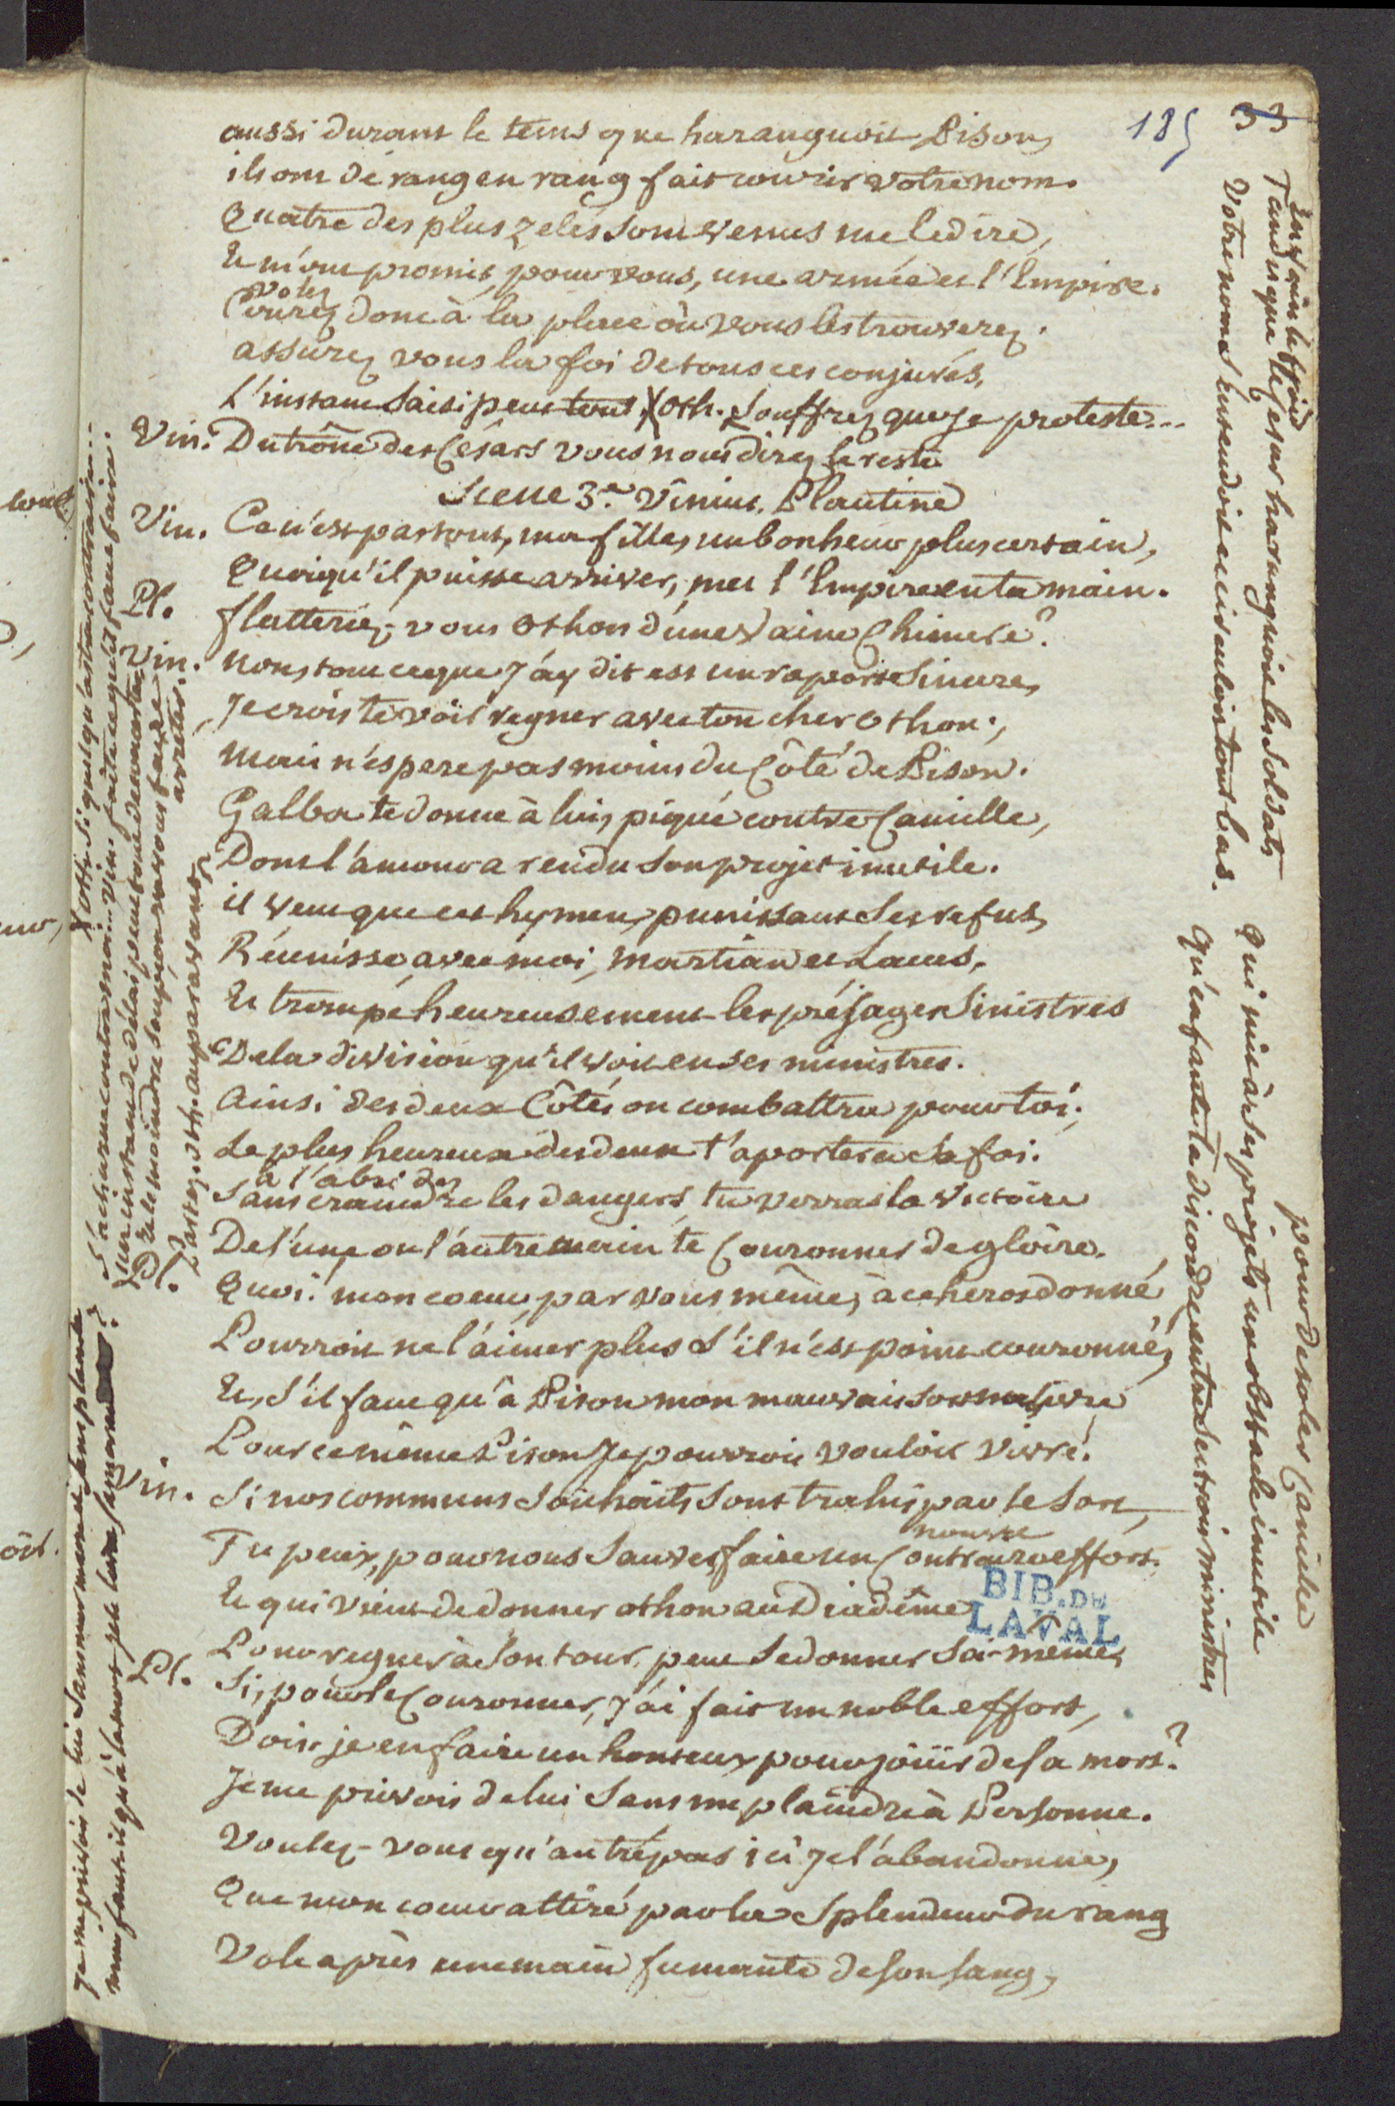 185 33
aussi durant le tems que haranguoit Pison,
ils ont de rang en rang fait courir votre nom.
Quatre des plus zelés sont venus me le dire,
Et m'ont promis, pour vous, une armée et l'Empire.
volez
Courez donc à la place où vous les trouverez.
assurez vous la foi de tous ces conjurés,
L'instant saisi peut tout. X Oth. Souffrez que je proteste...
Vin. Du trône des Césars vous nous direz le reste
Scene 3.e Vinius, Plautine
Vin. Ce n'est pas tout, ma fille, un bonheur plus certain,
Quoiqu'il puisse arriver, met l'Empire en ta main.
Pl. flatteriez-vous Othon d'une vaine Chimere?
Vin. Non, tout ce que J'ay dit est un raport sincere,
Je crois te voir regner avec ton cher Othon;
Mais n'espere pas moins du Côté de Pison.
Galba te donne à lui, piqué contre Camille,
Dont l'amour a rendu son projet inutile.
il veut que cet hymen, punissant ses refus,
Réunisse avec moi, Martian et Lacus,
Et trompe heureusement les présages sinistres
De la division qu'il voit en ses ministres.
Ainsi des deux Côtés on combattra pour toi;
Le plus heureux des deux t'aportera sa foi.
à l'abri des
Sans craindre les dangers, tu verras la victoire
De l'une ou l'autre main te Couronner de gloire.
Pl. Quoi! mon coeur, par vous même, à ce heros donné,
Pourroit ne l'aimer plus s'il n'est point couronné,
Et, s'il faut qu'à Pison mon mauvais sort me livre
Pour ce même Pison Je pourrois vouloir vivre!
Vin. Si nos communs souhaits sont trahis par le sort,
nouvel
Tu peux, pour nous sauver, faire un Contraire effort.
Et qui vient de donner Othon au Diadême
Pour regner à son tour, peut se donner soi-même,
Pl. Si, pour le Couronner, J'ai fait un noble effort,
Dois-je en faire un honteux pour joüir de sa mort?
Je me privois de lui sans me plaindre à Personne.
Voulez-vous qu'au trépas ici Je l'abandonne,
Que mon coeur attiré par la splendeur du rang
Vole après une main fumante de son sang,
BIB. DE
LAVAL
X Oth. Si quelqu'astre contraire...
S'acharne contre moi... Vin. faites ce qu'il faut faire.
Un instant de délai peut tout déconcerter
Et le moindre soupçon vous faire arrêter.
Partez. Oth. auparavant
Je me privois de lui sans murmure et sans plainte
En vain le froid
Tandis que le Cesar haranguoit les soldats
Votre nom s'entendoit et circuloit tout bas.
pour desoler Camille
Qui mit à ses projets un obstacle inutile
Qu'enfante la discorde entre ses trois ministres